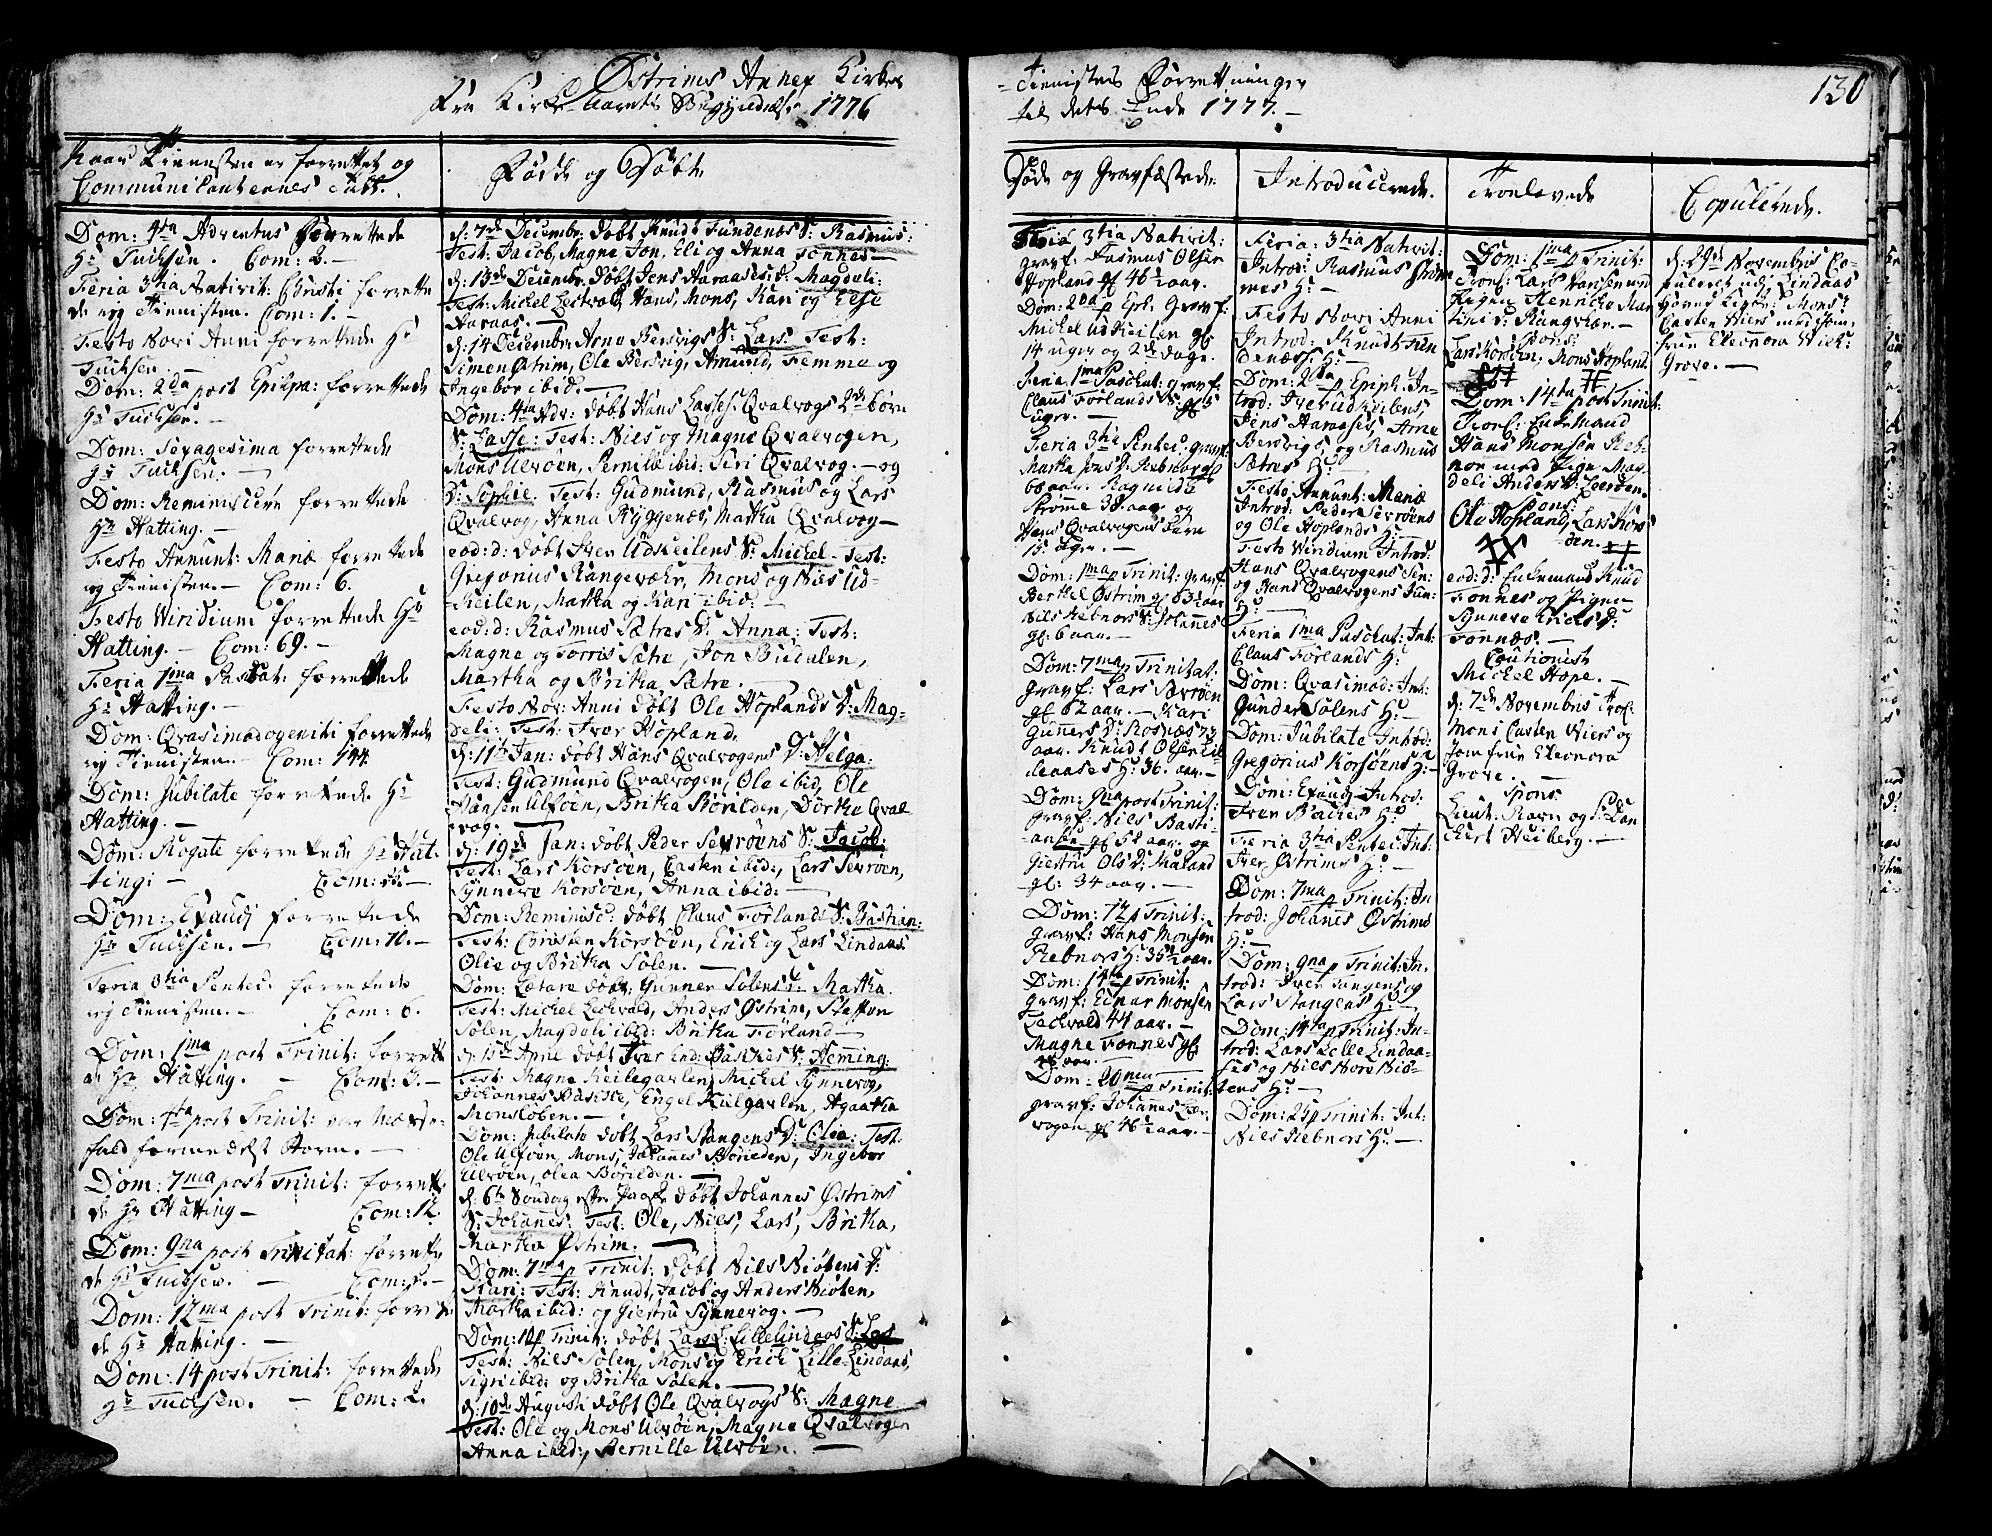 Østrims Annex Kirkes
Fra Kirke Aarets Begyndelse 1776
Tienistes Forretninger
til dets Ende 1777.
130
Naar Tienesten er forrettet og
Communicanternes Tall.
Fødde og Døbte
Døde og Gravfæstede.
Introducerede.
Troelovede
Copulerede.
Dom: 4ta Adventus Forrettede
Hr Tuchsen. Com: 3.
Feria 3tia Nativit: Christi forrette
de ieg Tienisten. Com: 1.
Festo Novi Anni forrettede Hr
Tuchsen.
Dom: 2da post Epiph: forrettede
Hr Tuchsen.
Dom: Sexagesima forrettede
Hr Tuchsen.
Dom: Reminiscere forrettede
Hr Hatting.
Festo Annunt: Mariæ forrettede
ieg Tienisten. Com: 6.
Festo Viridium forrettede Hr
Hatting. Com: 69.
Feria 1ma Paschat: forrettede
Hr Hatting.
Dom: Qvasimodogeniti forrettede
ieg Tienisten. Com: 144.
Dom: Jubilate forrettede Hr
Hatting.
Dom: Rogate forrettede Hr Hat-
ting:
Dom: Exaudi forrettede
Hr Tuchsen. Com: 10.
Feria 3tia Pentec: forrettede
ieg Tienisten. Com: 6.
Dom: 1ma post Trinit: forrett
de Hr Hatting. Com: 3.
Dom: 4ta post Trinit: var Messe-
fald formedelst Storm.
Dom: 7ma post Trinit: forrett
de Hr Hatting Com: 12
Dom: 9na post Trinitat: forrette
de Hr Tuchsen. Com: 5.
Dom: 12ma post Trinit: forrette
de Hr Hatting.
Dom: 14 post Trinit: forrettede
Hr Tuchsen. Com: 2.
d: 7de Decembr: døbt Knudt Fundenæs S: Rasmus:
Test: Jacob, Magne, Jon, Eli og Anna Fonnæs
d: 13de Decembr: døbt Jens Aaraases D: Magdeli:
Test: Michel Lechvold, Hans, Mons, Kari og Else
Aaraas.
d: 14 Decembr: Arne Bersvigs S: Lars. Test:
Simen Østrim, Ole Bersvig, Amund, Femme og
Ingebor ibid.
Dom: 4ta Adv: døbt Hans Lasses: Qvalvogs 2de børn
S: Lasse: Test: Niels og Magne Qvalvogen,
Mons Ulvøen, Pernille ibid: Siri Qvalvog. og
D: Sophie. Test: Gudmund, Rasmus og Lars
Qvalvog, Anna Ryggenæs, Martha Qvalvog
eod: d: døbt Iver Udkeilens S: Michel. Test:
Gregorius Rangevæhr, Mons og Nies Ud-
keilen, Martha og Kari ibid:
eod: d: Rasmus Sætres D: Anna: Test:
Magne og Torris Sætre, Jon Budalen,
Martha og Britha Sætre.
Festo Nov: Anni døbt Ole Hoplands D: Mag-
deli: Test: Iver Hopland.
d: 11te Jan: døbt Hans Qvalvogens D: Helga:
Test: Gudmund Qvalvogen, Ole ibid, Ole
Hansen Ulføen, Britha Børilden, Dorthe Qval
vog.
d: 19de Jan: døbt Peder Sevrøens S: Jacob:
Test: Lars Korsøen, Casten ibid:, Lars Sevrøen,
Synneve Korsøen, Anna ibid:
Dom: Reminisc: døbt Claus Førlands S: Bastian:
Test: Christen Korsøen, Erich og Lars Lindaas
Olie og Britha Sølen.
Dom: Lætare døbt Gunner Sølens D: Martha.
Test: Michel Lechvald, Anders Østrim, Steffen
Sølen, Magdeli ibid: Britha Førland
d: 15de April døbt Iver Bachses S: Heming:
Test: Magne Keilegavlen, Michel Synnevog,
Johannes Bachse, Engel Keilgavlen, Agaatha
Monsloben.
Dom: Jubilate døbt Lars Stangens D: Olie: Test:
Ole Ulføen, Mons, Johanes Børilden, Ingebor
Ulvøen, Olea Børilden.
d: 6te Søndag efter Paaske døbt Johannes Østrims
S: Johanes: Test: Ole, Niels, Lars, Britha,
Martha Østrim.
Dom: 7ma p Trinit: døbt Niels Niøtens D:
Kari: Test: Knudt, Jacob og Anders Niøten,
Martha ibid: og Giertru Synnevog.
Dom: 12 p Trinit: døbt Lars L: Lillelindaas S: Lars
Test: Niels Sølen, Mons og Erich Lille-Lindaas,
Sigri ibid: og Britha Sølen.
d: 10de Augusti døbt Ole Qvalvogs S: Magne
Test: Ole og Mons Ulvøen, Magne Qvalvogen
Anna ibid:, Pernille Ulvøen.
Feria 3tia Nativit:
gravf: Rasmus Olsen
Hopland gl 46 1/2 aar.
Dom: 2da p Eph. Gravf:
Michel Udkeilen gl
14 uger og 2de dage.
Feria 1ma Paschat: gravf:
Claus Førlands S: gl 15
uger.
Feria 3tia Pentec: gravf:
Martha Jons D: Rebnor gl
68 aar. Ragnilde
Strømme 38 aar og
Hans Qvalvogens barn
15 uger.
Dom: 1ma p Trinit: gravf:
Berthel Østrim gl 63 1/2 aar
Nils Rebnors S: Johannes
gl: 6 aar.
Dom: 7ma p Trinitat:
gravf: Lars Sævrøen
gl 62 aar. Kari
Gunners D: Rosnæs 73
aar. Knudt Olsen Lil
Dom: 9na post Trinit:
gravf: Niels Basti-
ansen gl 58 aar. og
Giertru Ols D: Maland
gl: 34 aar.
Dom: 12 p Trinit:
gravf: Hans Monsen
Rebnors H: 35 1/2 aar.
Dom: 14ta p Trinit:
gravf: Einar Monsen
Lechvald 44 aar.
Magne Fonnes gl
Dom: 20ma p Trinit:
gravf: Johannes Lær
vogen gl 46 1/2 aar.
Feria: 3tia Nativit:
Introd: Rasmus Strøm
mes H:
Festo Novi Anni
Introd: Knudt Fun
denæss: H:
Dom: 2da p Epiph. In-
trod: Iver Udkeilens,
Jens Aaraases, Arne
Bersvigs, og Rasmus
Sætres H:
Festo Annunt: Mariæ
Introd: Peder Sevrøens
og Ole Hoplands H:
Festo Viridium Introd:
Hans Qvalvogens Sen:
og Hans Qvalvogens Jun:
H:
Feria 1ma Paschat: Int:
Claus Førlands H:
Dom: Qvasimod: Int:
Gunder Sølens H:
Dom: Jubilate Introd:
Gregorius Korsøens H:
Dom: Exaudi Introd:
Iver Bachses H:
Feria 3tia Pentec: Int:
Iver Østrims H:
Dom: 7ma p Trinit: In
trod: Johanes Østrims
H:
Dom: 9na p Trinit: In-
trod: Iver Tangens og
Lars Stangens H:
Dom: 14ta p Trinit: In-
trod: Lars Lille Lindaa-
ses og Niels Nore Niø-
tens H:
Dom: 25 p Trinit: Int:
Niels Rebnors H:
Dom: 1ma p Trinit:
Trol: Lars Hansen med
Pigen Henriche Mar
tini D: Rangvær.
Spons:
Lars Korsøen, Mons Hopland.
Dom: 14ta post Trinit:
Trol: Enkemand
Hans Monsen Reb-
nor med Pigen Mag
deli Anders D: Leerøen.
Spons:
Ole Hopland, Lars Kors
øen.
eod: d: Enkemand Knud
Fonnes og Pigen
Synneve Niels D:
Fonnæs.
Cautionist
Michel Hope.
d: 7de Novembris Trol:
Mons Casten Wiers og
Jomfrue Eleonora
Grove.
Spons:
Lieut. Ravn og Sr Dan
chert Heiberg.
d: 29de Novembris Co-
puleret udj Lindaas
Hoved Kirke: Monsr
Casten Wiers med Jom-
frue Eleonora Wich:
Grove.